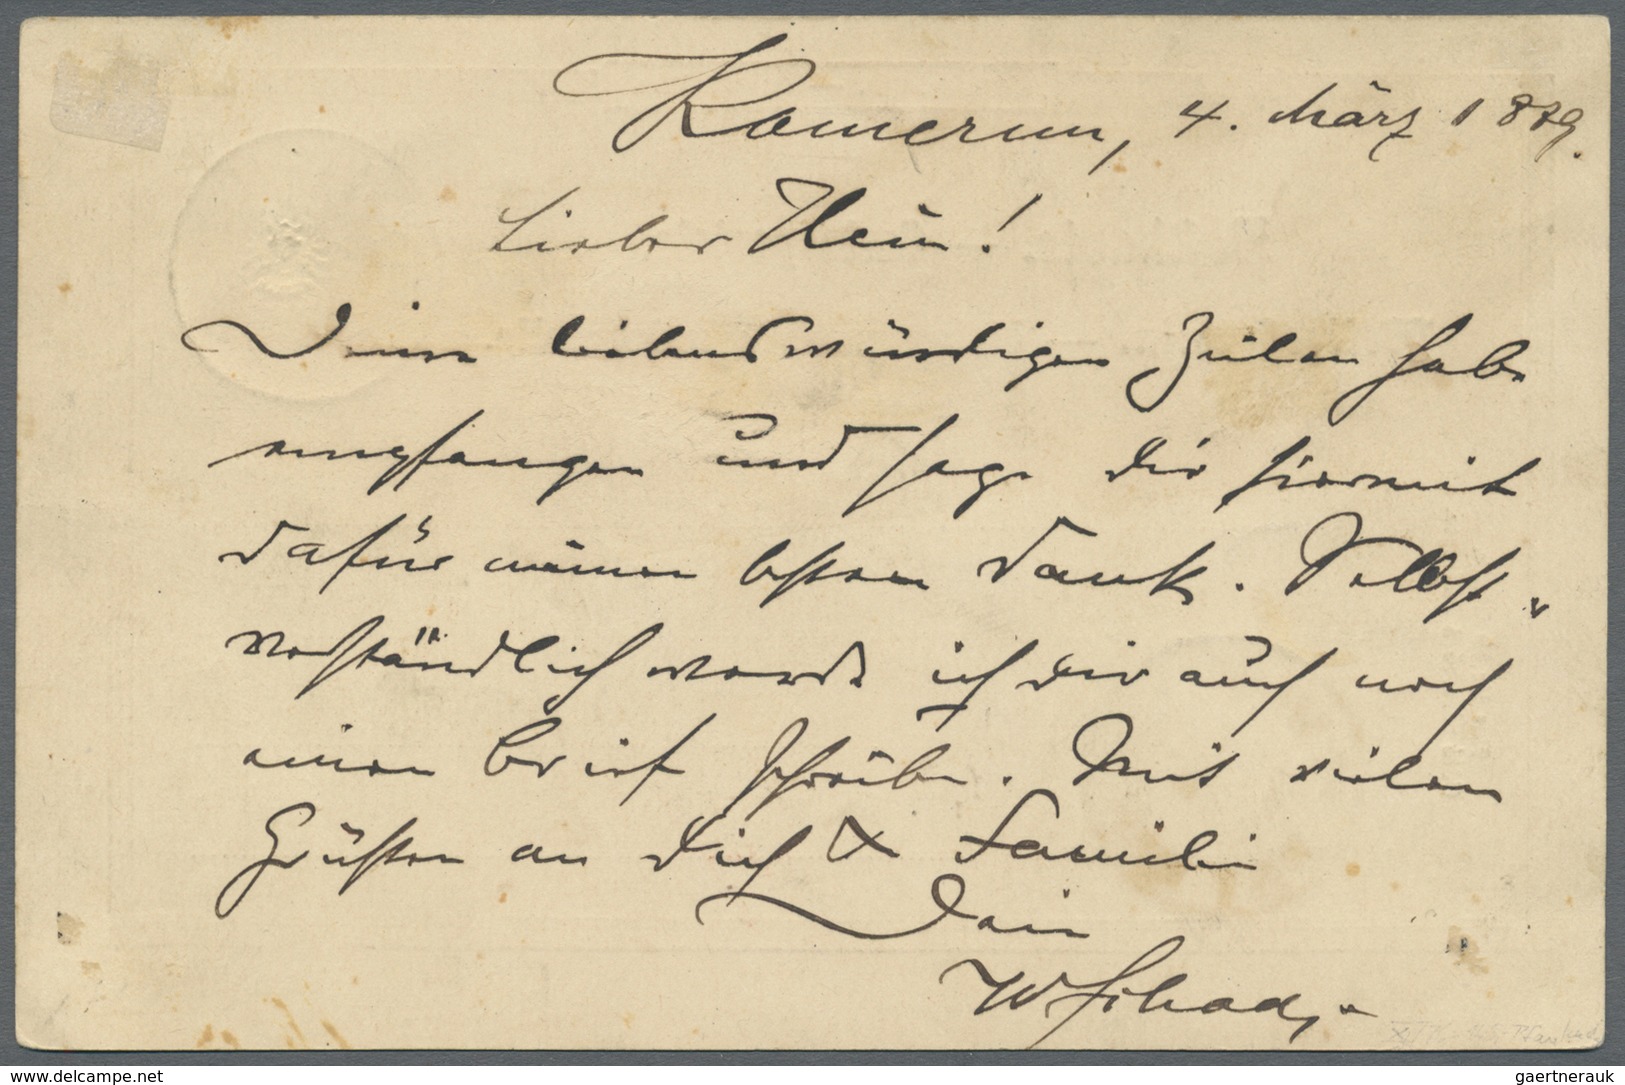 Kamerun, 4. März 1889.
Lieber Hein!
Deine liebenswürdigen Zeilen habe
empfangen und sage Dir hiermit
dafür meinen besten Dank. Selbst-
verständlich werde ich Dir auch noch
einen Brief schreiben. Mit vielen
Grüßen an Dich & Familie
Dein
delcampe.net
gaertnerauk